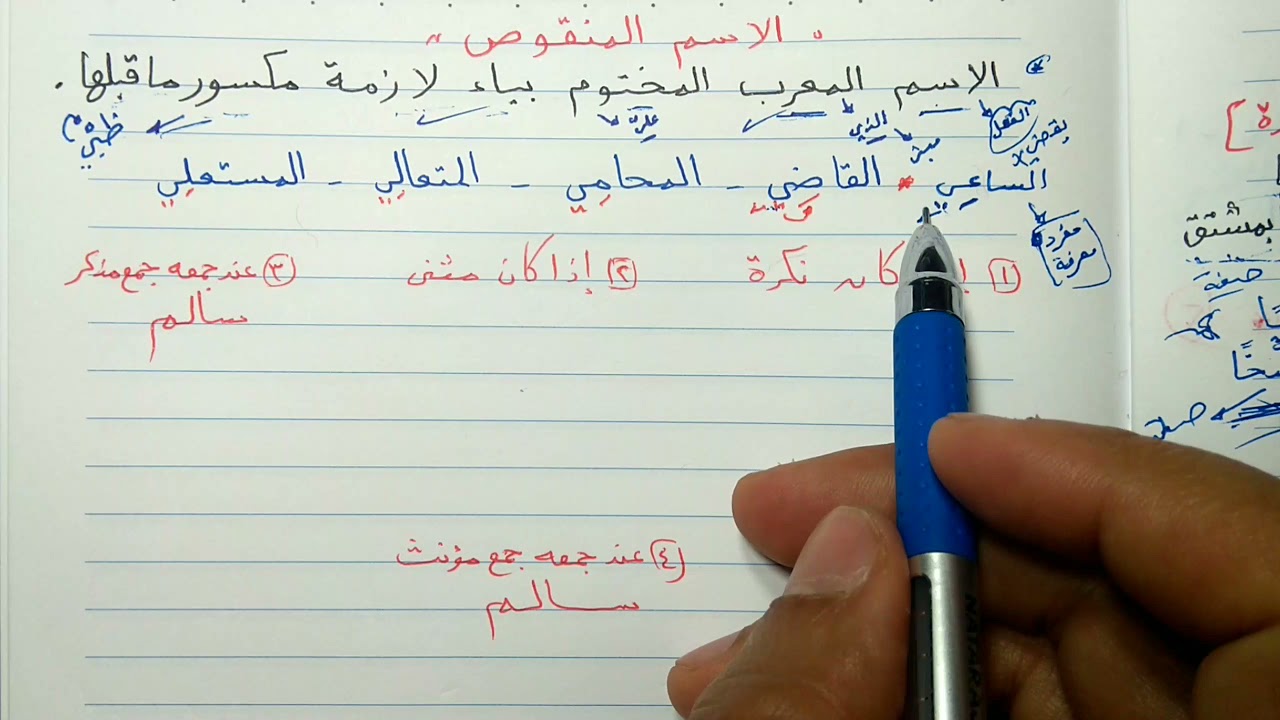 " الاسم المنقوص "
* الاسم المعرب المختوم بياء لازمة مكسور ما قبلها.
الفعل الذي علة ظبي
الساعي * القاضي - المحامي - المتعالي - المستعلي
مفرد
معرفة
١ كان نكرة ٢ إذا كان مثنى ٣ عند جمعه جمع مذكر
سالم
٤ عند جمعه جمع مؤنث
سالم
بمشتق